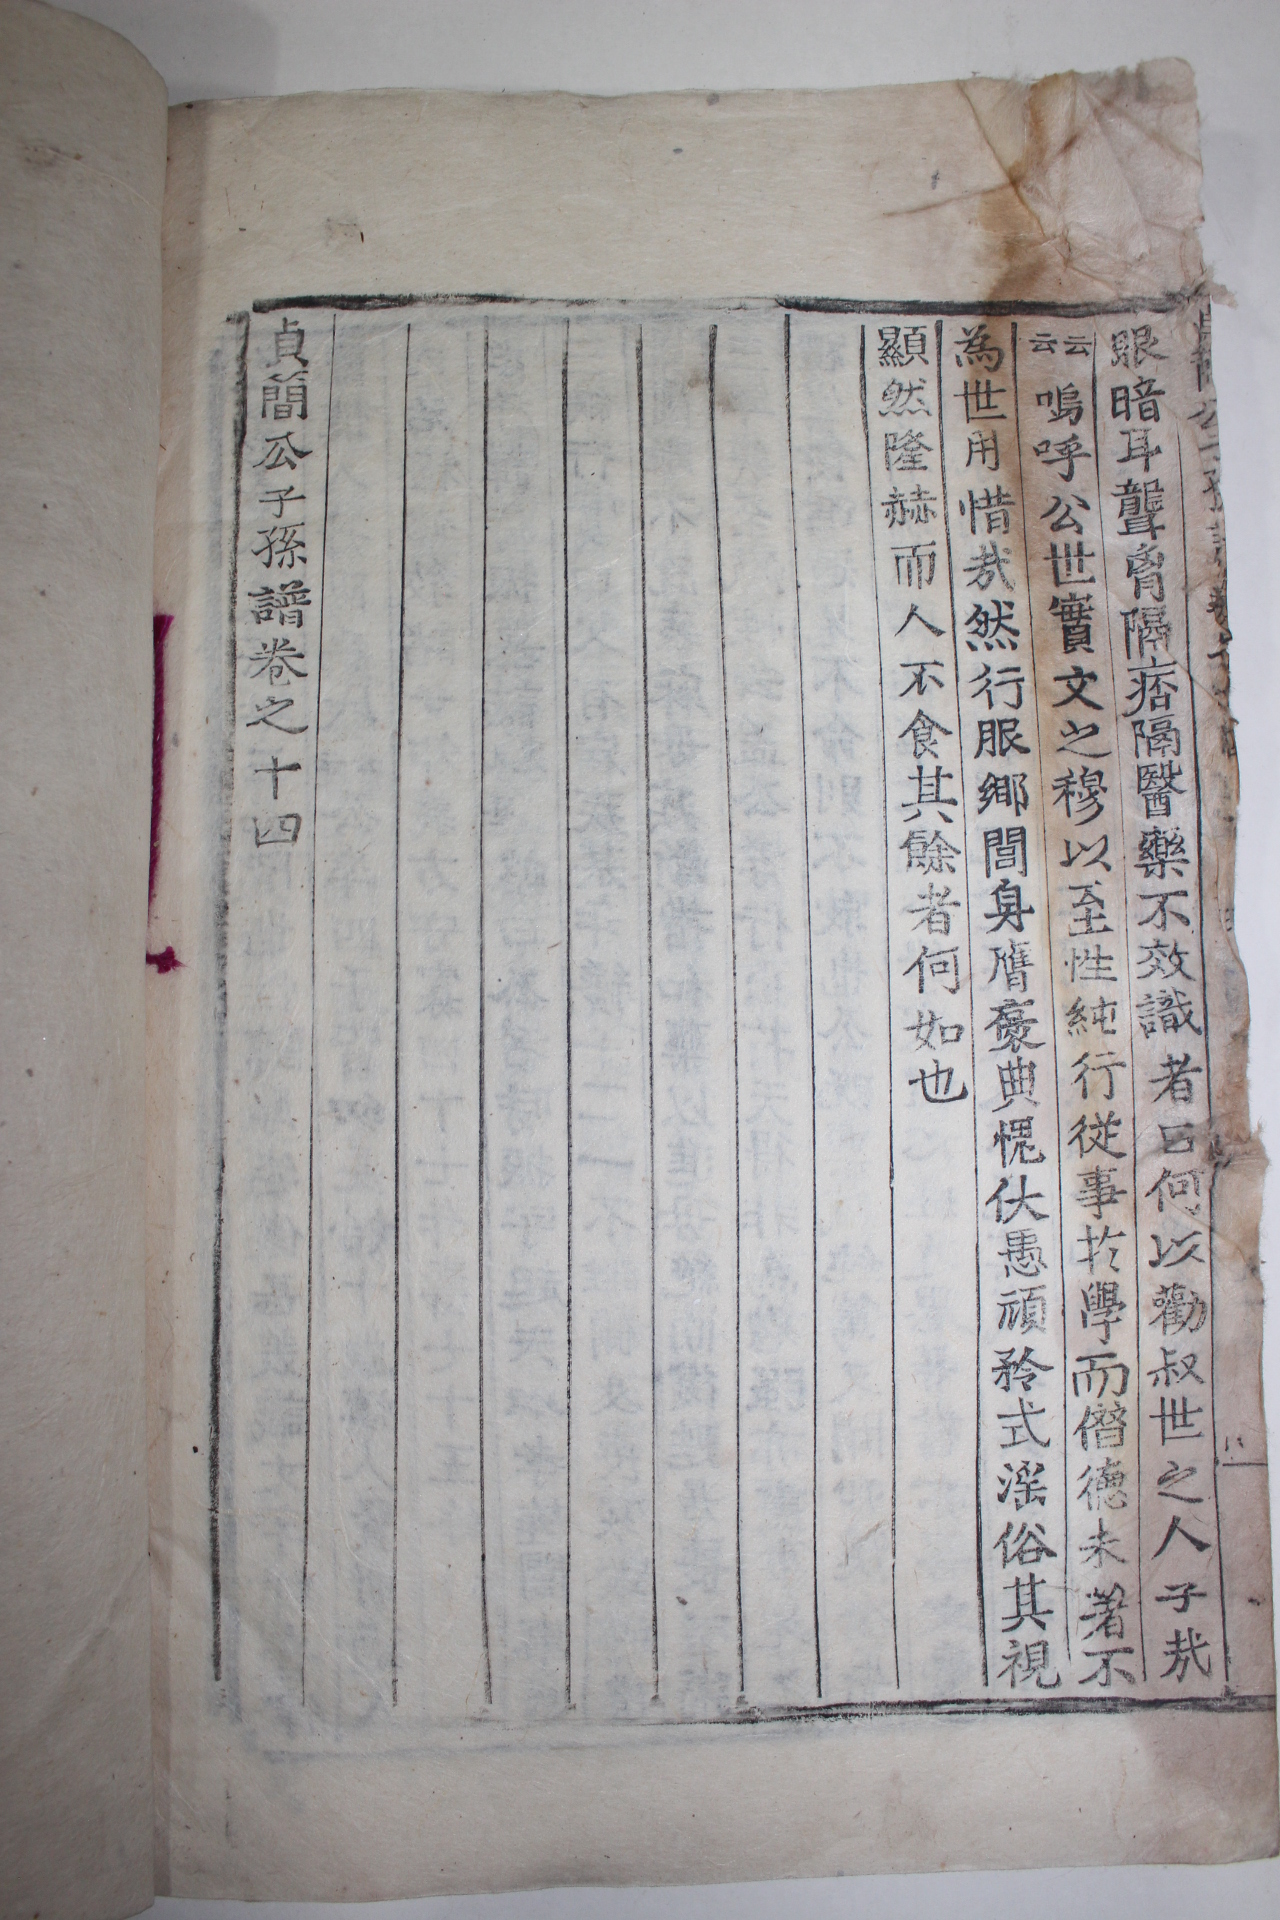 眼暗耳聾胷隔痞隔醫藥不效識者曰何以勸叔世之人子㢤
云云嗚呼公世實文之穆以至性純行從事於學而僭德未著不
為世用惜㢤然行服鄉閭身膺褒典愧伏愚頑矜式滛俗其視
顯然隆赫而人不食其餘者何如也
貞簡公子孫譜卷之十四